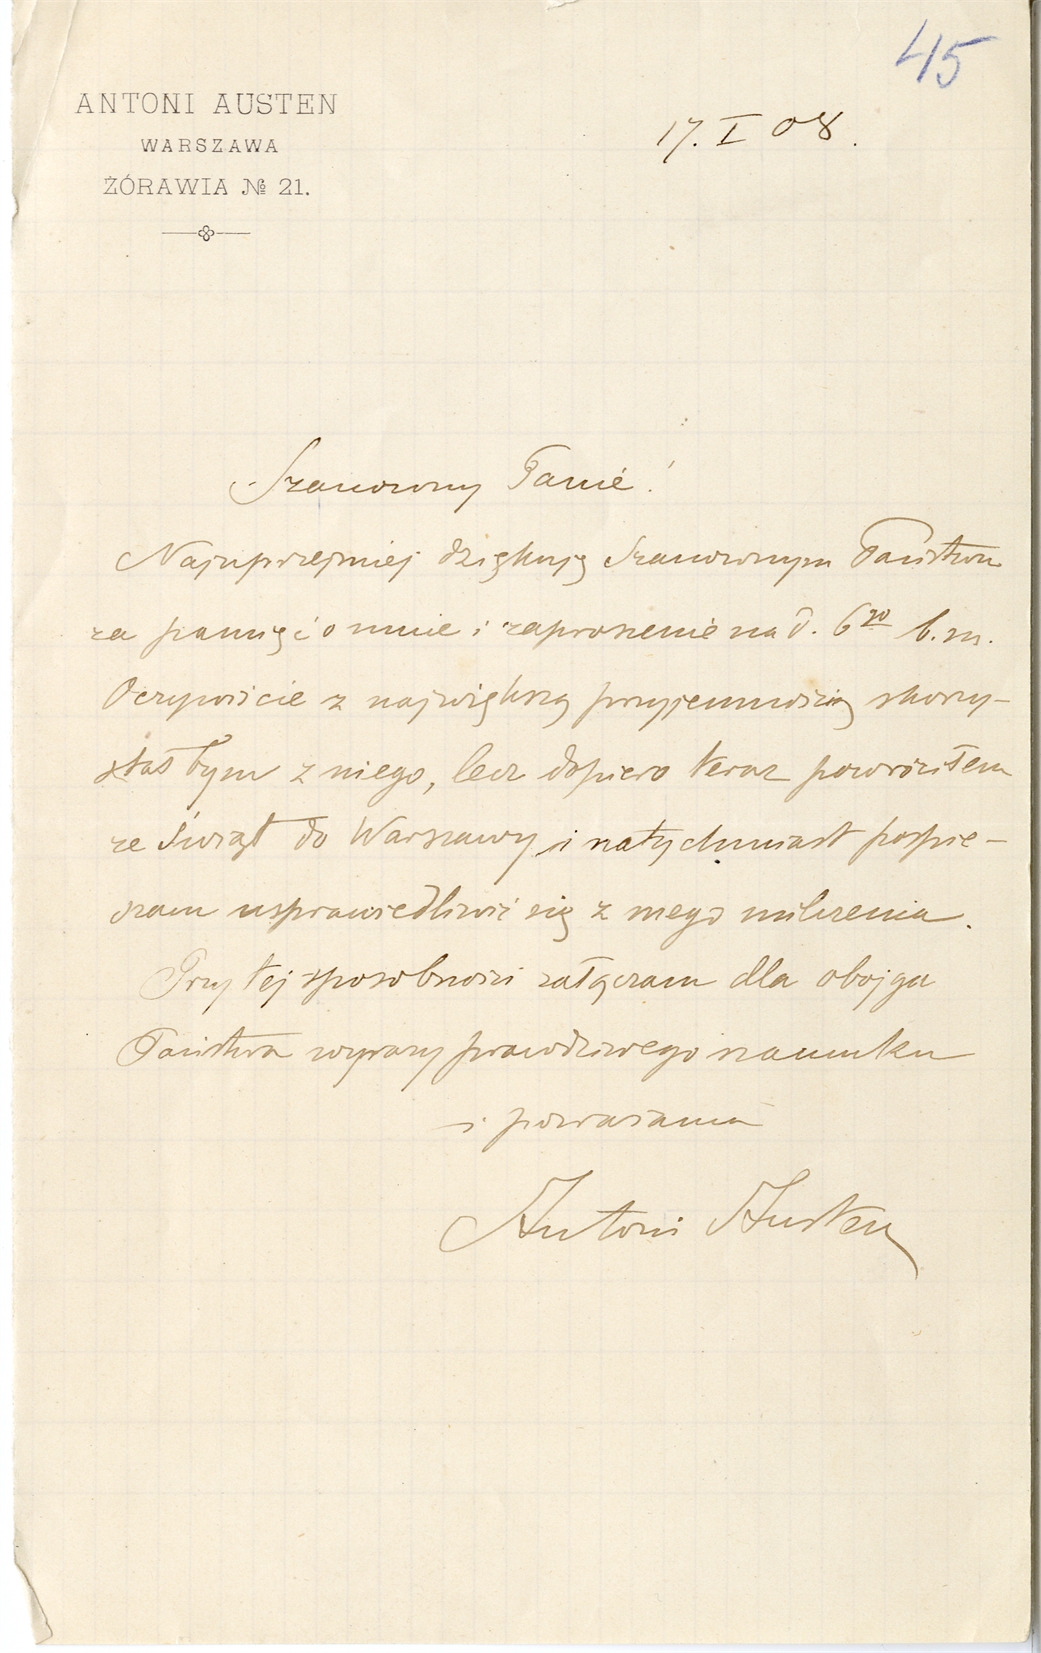 45
ANTONI AUSTEN
WARSZAWA
ŻÓRAWIA № 21.
17. I 08.
Szanowny Panie!
Najuprzejmiej dziękuję Szanownym Państwu
za pamięć o mnie i zaproszenie na d. 6go b.m.
Oczywiście z największą przyjemnością skorzy-
stałbym z niego, lecz dopiero teraz powróciłem
ze Świąt do Warszawy i natychmiast pospie-
szam usprawiedliwić się z mego milczenia.
Przy tej sposobności załączam dla obojga
Państwa wyrazy prawdziwego szacunku
i poważania
Antoni Austen